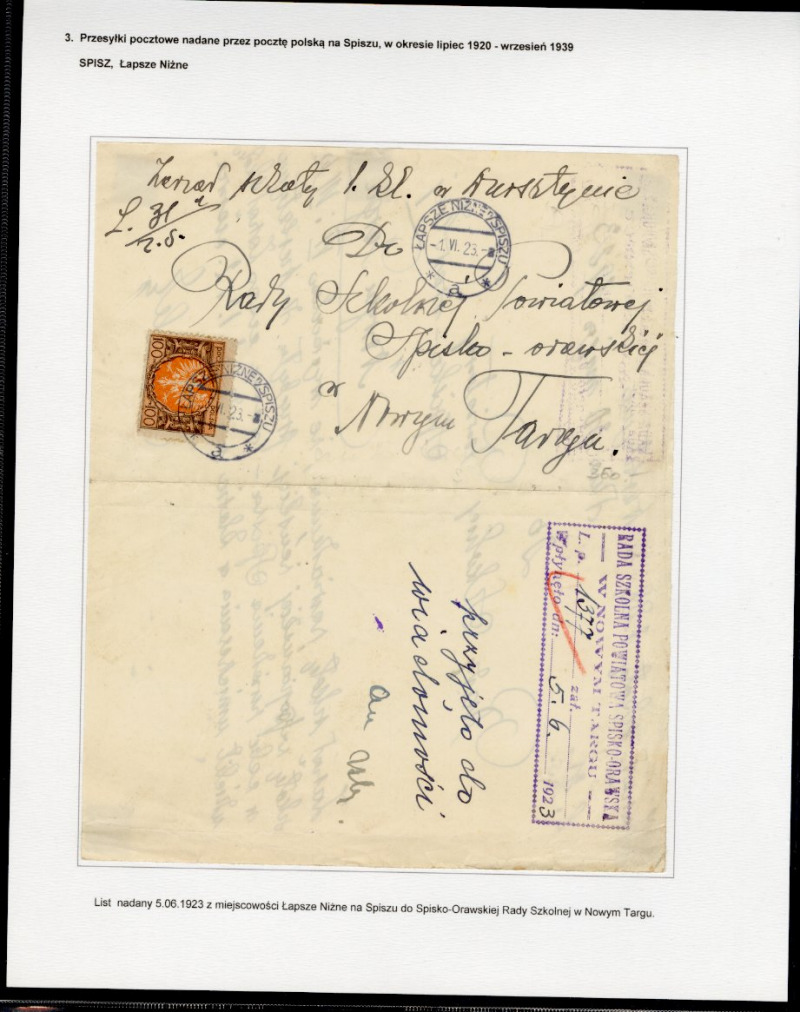 3. Przesyłki pocztowe nadane przez pocztę polską na Spiszu, w okresie lipiec 1920 - wrzesień 1939
SPISZ, Łapsze Niżne
Zarząd szkoły 1. kl. w Dursztynie
L. 31
ŁAPSZE NIŻNE SPISZU
-1.VI.23.-
a
Do
Rady Szkolnej Powiatowej
Spisko-orawskiej
w Nowym Targu.
100
100
ŁAPSZE NIŻNE SPISZU
VI.23.-
a
RADA SZKOLNA POWIATOWA SPISKO-ORAWSKA
W NOWYM TARGU
L. p. 1377 zał.
Wpłynęło dn: 5. 6. 1923
przyjęto do
wiadomości
List nadany 5.06.1923 z miejscowości Łapsze Niżne na Spiszu do Spisko-Orawskiej Rady Szkolnej w Nowym Targu.